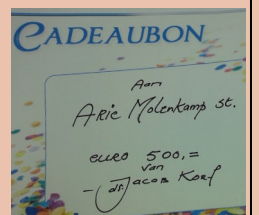 CADEAUBON
Aan
Arie Molenkamp st.
euro 500,=
van
- ds. Jacob Korf